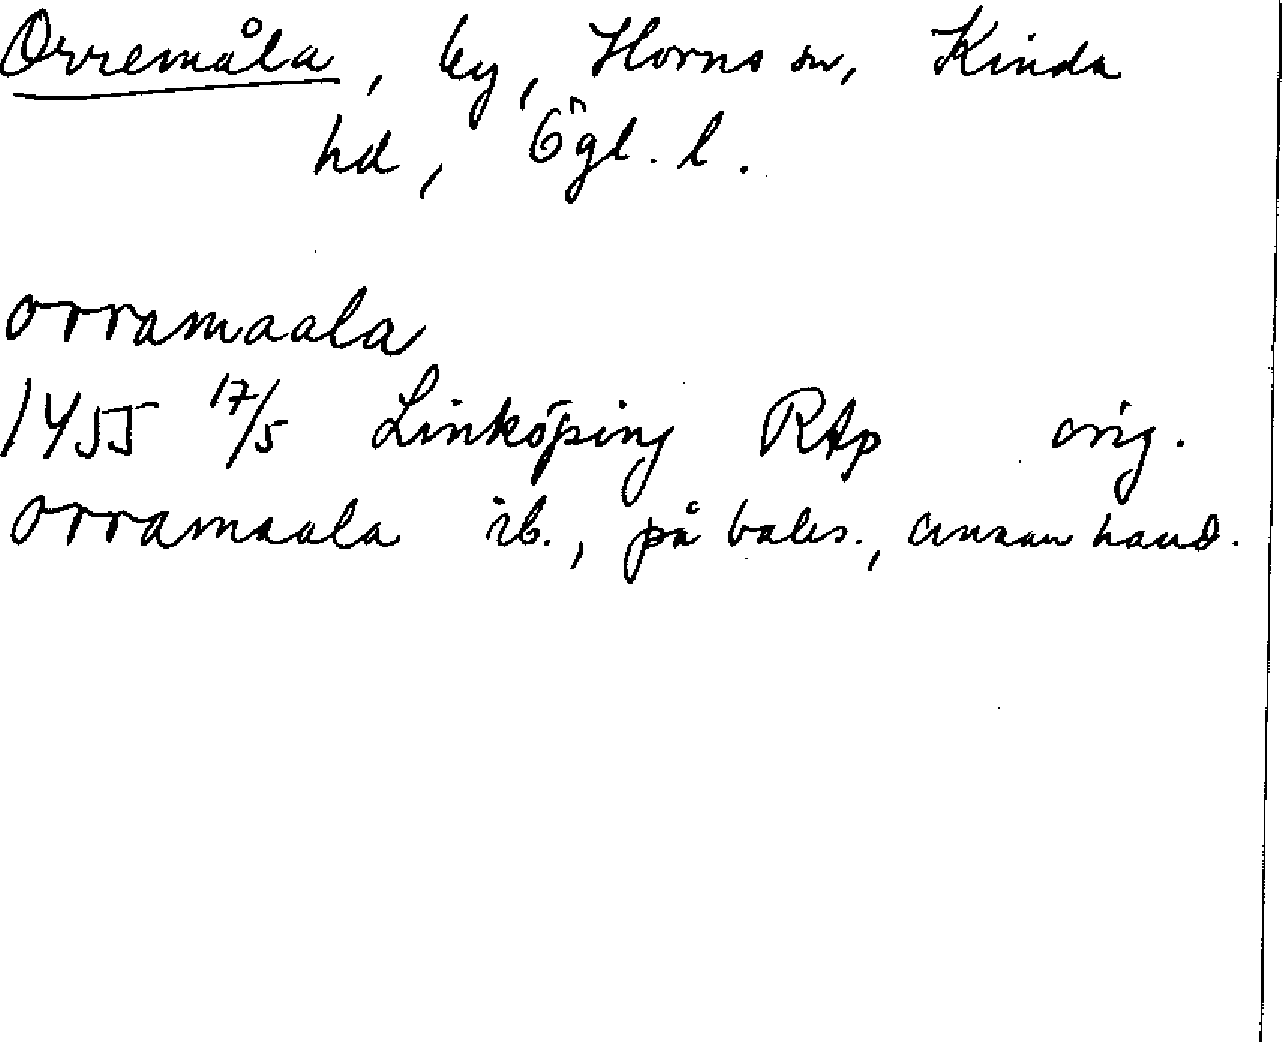 Orremåla, by, Horns sn, Kinda
hd, Ögl. l.
orramaala
1455 17/5 Linköping RAp orig.
orramaala ib., på baks., annan hand.